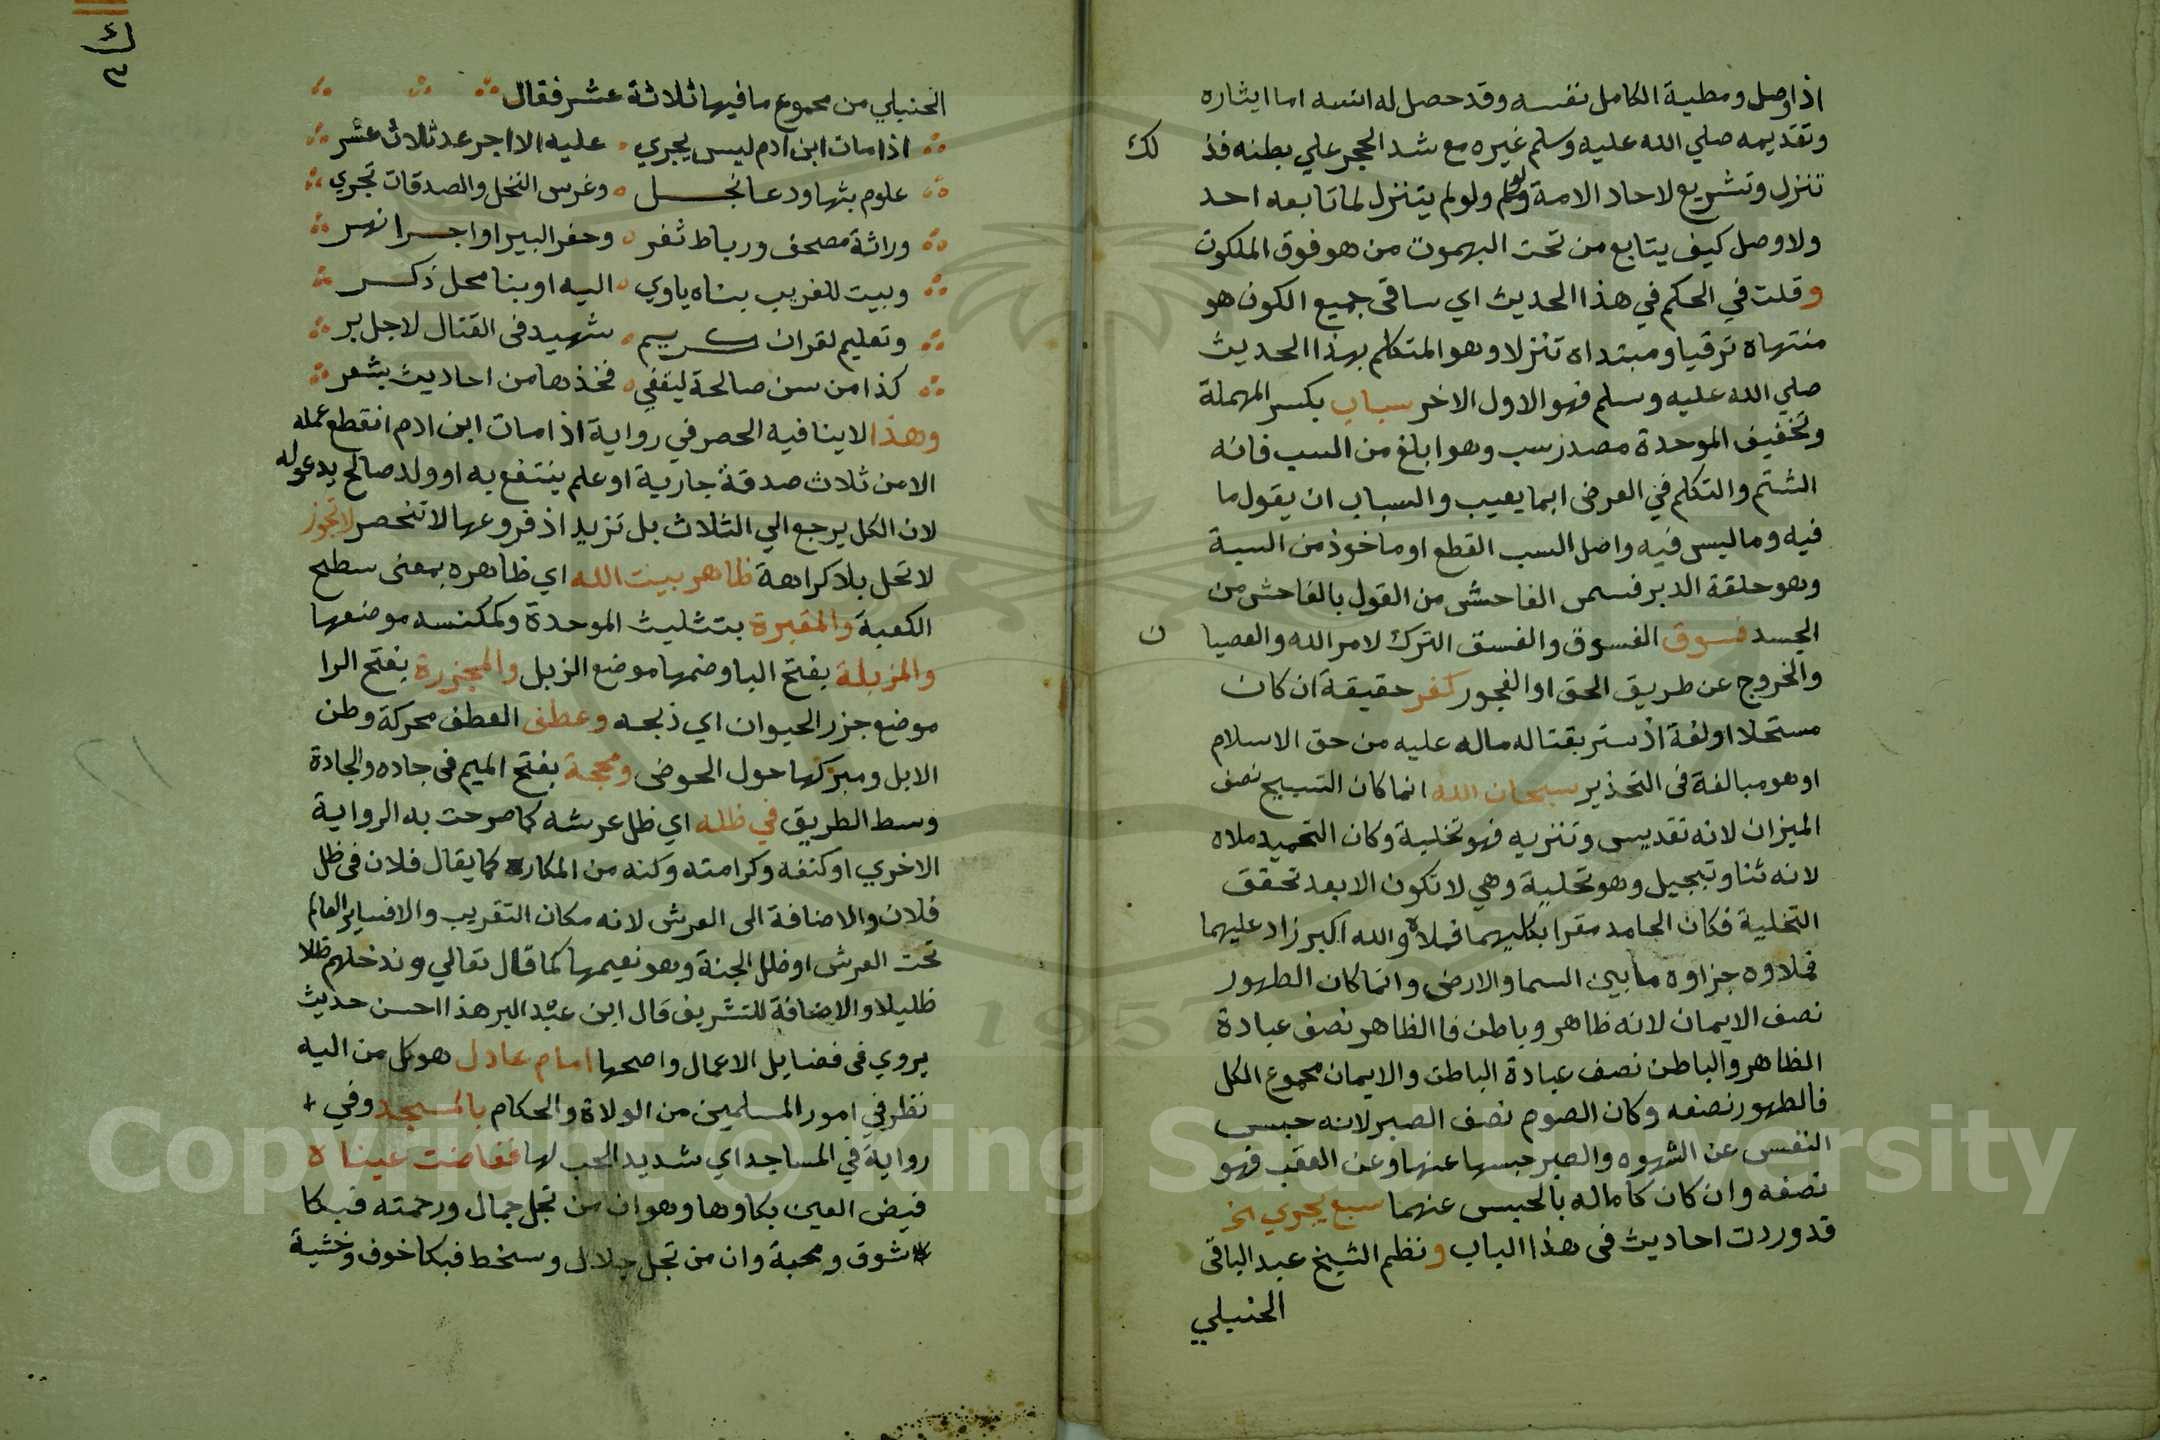 اذا وصل ومطية الكامل نفسه وقد حصل له انسه اما ايثاره
وتقديمه صلي الله عليه وسلم غيره مع شد الحجر علي بطنه فذلك
تنزل وتشريع لاحاد الامة ولو لم يتنزل لما تابعه احد
ولا وصل كيف يتابع من تحت البهموت من هو فوق الملكوت
وقلت في الحكم في هذا الحديث اي ساقى جميع الكون هو
منتهاه ترقيا ومبتداه تنزلا وهو المتكلم بهذا الحديث
صلي الله عليه وسلم فهو الاول الاخر سباب بكسر المهملة
وتخفيف الموحدة مصدر سب وهو ابلغ من السب فانه
الشتم والتكلم في العرض بما يعيب والسباب ان يقول ما
فيه وما ليس فيه واصل السب القطع او ماخوذ من السبة
وهو حلقة الدبر فسمى الفاحش من القول بالفاحش من
الجسد فسوق الفسوق والفسق الترك لامر الله والعصيان
والخروج عن طريق الحق او الفجور كفر حقيقة ان كان
مستحلا او لغة اذ ستر بقتاله ماله عليه من حق الاسلام
او هو مبالغة في التحذير سبحان الله انما كان التسبيح نصف
الميزان لانه تقديس وتنزيه فهو تخلية وكان التحميد ملاه
لانه ثنا وتبجيل وهو تحلية وهي لا تكون الا بعد تحقق
التخلية فكان الحامد مقرا بكليهما فملاه والله اكبر زاد عليهما
فملا وه جزاوه ما بين السما والارض وانما كان الطهور
نصف الايمان لانه ظاهر وباطن فاالظاهر نصف عبادة
الظاهر والباطن نصف عبادة الباطن والايمان مجموع الكل
فالطهور نصفه وكان الصوم نصف الصبر لانه حبس
النفس عن الشهوه والصبر حبسها عنها وعن الغضب فهو
نصفه وان كان كماله بالحبس عنهما سبع يجري الخ
قد وردت احاديث في هذا الباب ونظم الشيخ عبد الباقى
الحنبلي
ك
٣
الحنبلي من مجموع ما فيها ثلاثة عشر فقال
اذا مات ابن ادم ليس يجري عليه الا اجر عد ثلاث عشر
علوم بثها ودعا نجل وغرس النخل والصدقات تجري
وراثة مصحف ورباط ثغر وحفر البير او اجرا نهر
وبيت للغريب بناه ياوي اليه او بنا محل ذكر
وتعليم لقران كريم شهيد في القتال لاجل بر
كذا من سن صالحة ليقفي فخذها من احاديث بشعر
وهذا لا ينافيه الحصر في رواية اذا مات ابن ادم انقطع عمله
الا من ثلاث صدقة جارية او علم ينتفع به او ولد صالح يدعو له
لان الكل يرجع الي الثلاث بل تزيد اذ فروعها لا تنحصر لا تجوز
لا تحل بلا كراهة ظاهر بيت الله اي ظاهره بمعنى سطح
الكعبة والمقبرة بتثليث الموحدة وكمكنسه موضعها
والمزبلة بفتح البا وضمها موضع الزبل والمجزرة بفتح الرا
موضع جزر الحيوان اي ذبحه وعطن العطن محركة وطن
الابل ومبركها حول الحوض ومحجة بفتح الميم في جاده والجادة
وسط الطريق في ظله اي ظل عرشه كما صرحت به الرواية
الاخري او كنفه وكرامته وكنه من المكاره كما يقال فلان في ظل
فلان والاضافة الى العرش لانه مكان التقريب والا فساير العالم
تحت العرش او ظلل الجنة وهو نعيمها كما قال تعالي وندخلهم ظلا
ظليلا والاضافة للتشريف قال ابن عبد البر هذا احسن حديث
يروي في فضايل الاعمال واصحها امام عادل هو كل من اليه
نظر في امور المسلمين من الولاة والحكام بالمسجد وفي
رواية في المساجد اي شديد الحب لها ففاضت عيناه
فيض العين بكاوها وهو ان من تجل جمال ورحمته فبكا
شوق ومحبة وان من تجل جلال وسخط فبكا خوف وخشية
1957
Copyright © King Saud University